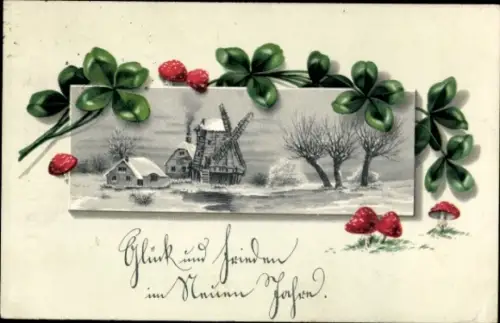 Glück und Frieden
im Neuen Jahre.